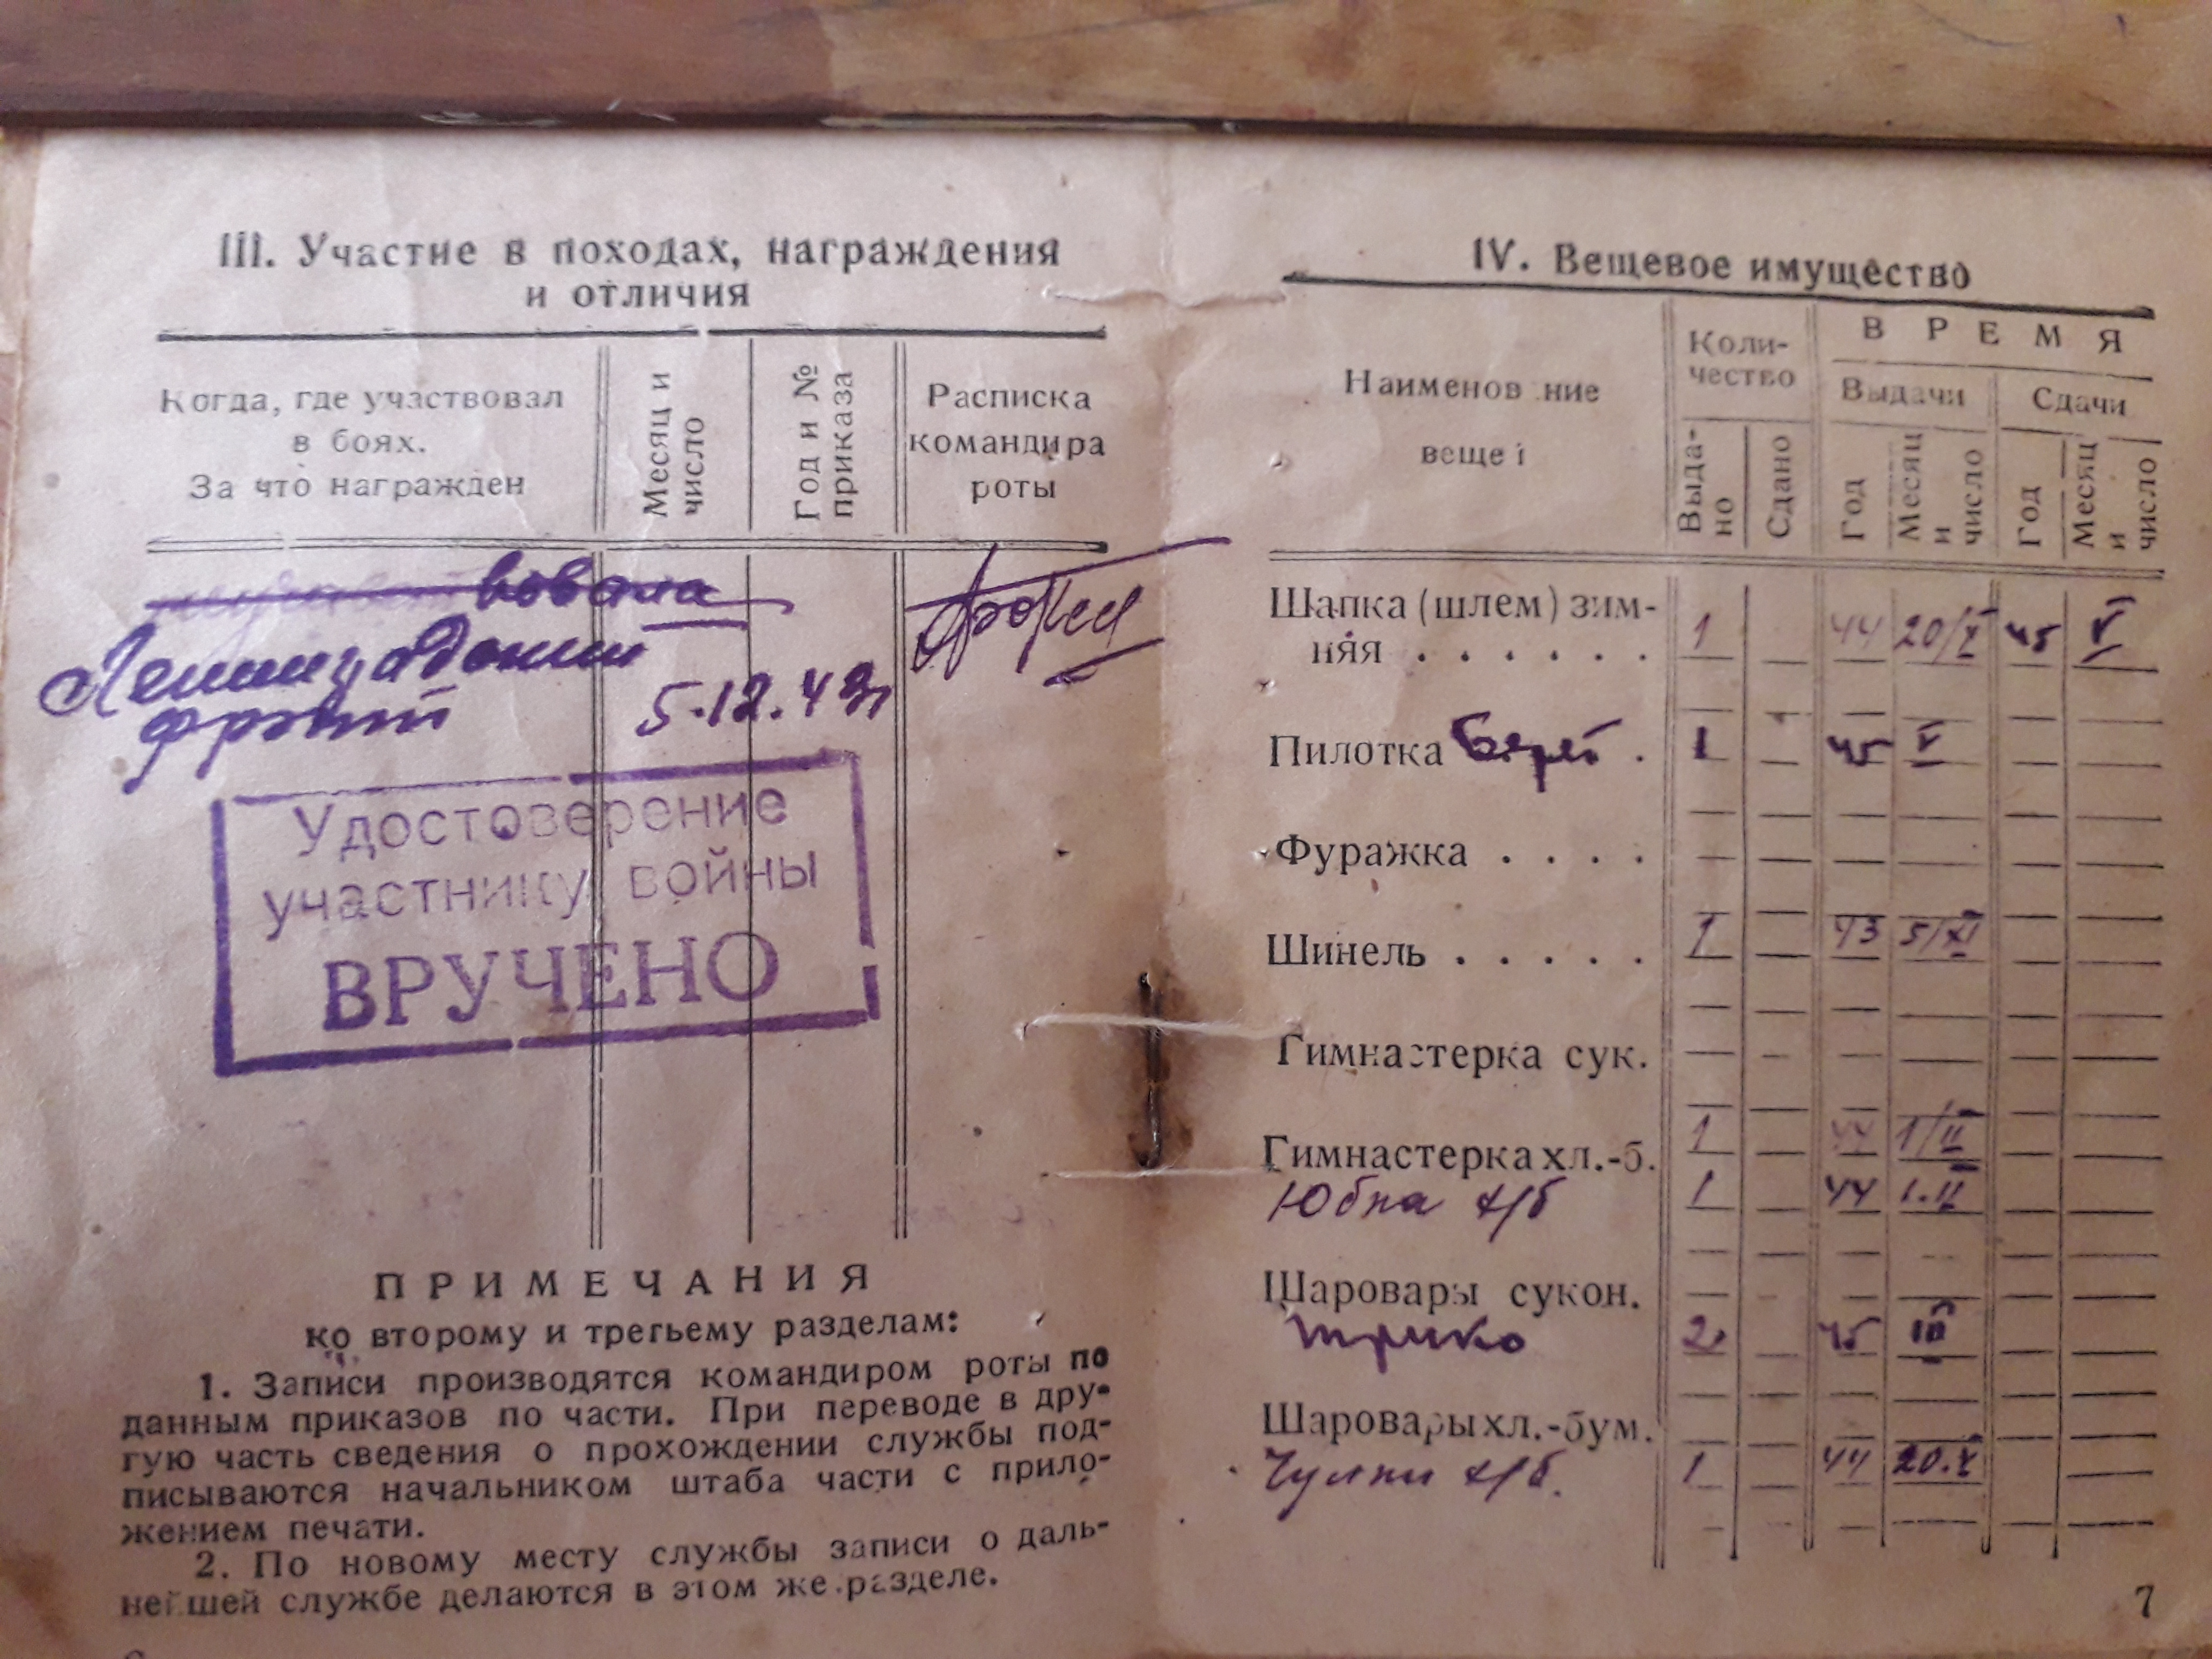 III. Участие в походах, награждения
и отличия
Когда, где участвовал
в боях.
За что награжден
Месяц и
число
Год и №
приказа
Расписка
командира
роты
вовала
Ленинградский
фронт
5.12.43г
Удостоверение
участнику войны
ВРУЧЕНО
ПРИМЕЧАНИЯ
ко второму и третьему разделам:
1. Записи производятся командиром роты по
данным приказов по части. При переводе в дру-
гую часть сведения о прохождении службы под-
писываются начальником штаба части с прило-
жением печати.
2. По новому месту службы записи о даль-
нейшей службе делаются в этом же разделе.
IV. Вещевое имущество
Наименов ние
веще
Коли-
чество
ВРЕМЯ
Выдачи
Сдачи
Выда-
но
Сдано
Год
Месяц
и
число
Год
Месяц
и
число
Шапка (шлем) зим-
няя . . . . . . 1 44 20/X 45 V
Пилотка Берет . 1 45 V
Фуражка . . . .
Шинель . . . . . 1 43 5/XI
Гимнастерка сук.
Гимнастерка хл.-б. 1 44 1/II
Юбка х/б 1 44 1.II
Шаровары сукон.
трико 2 45 III
Шаровары хл.-бум.
Чулки х/б. 1 44 20.X
7